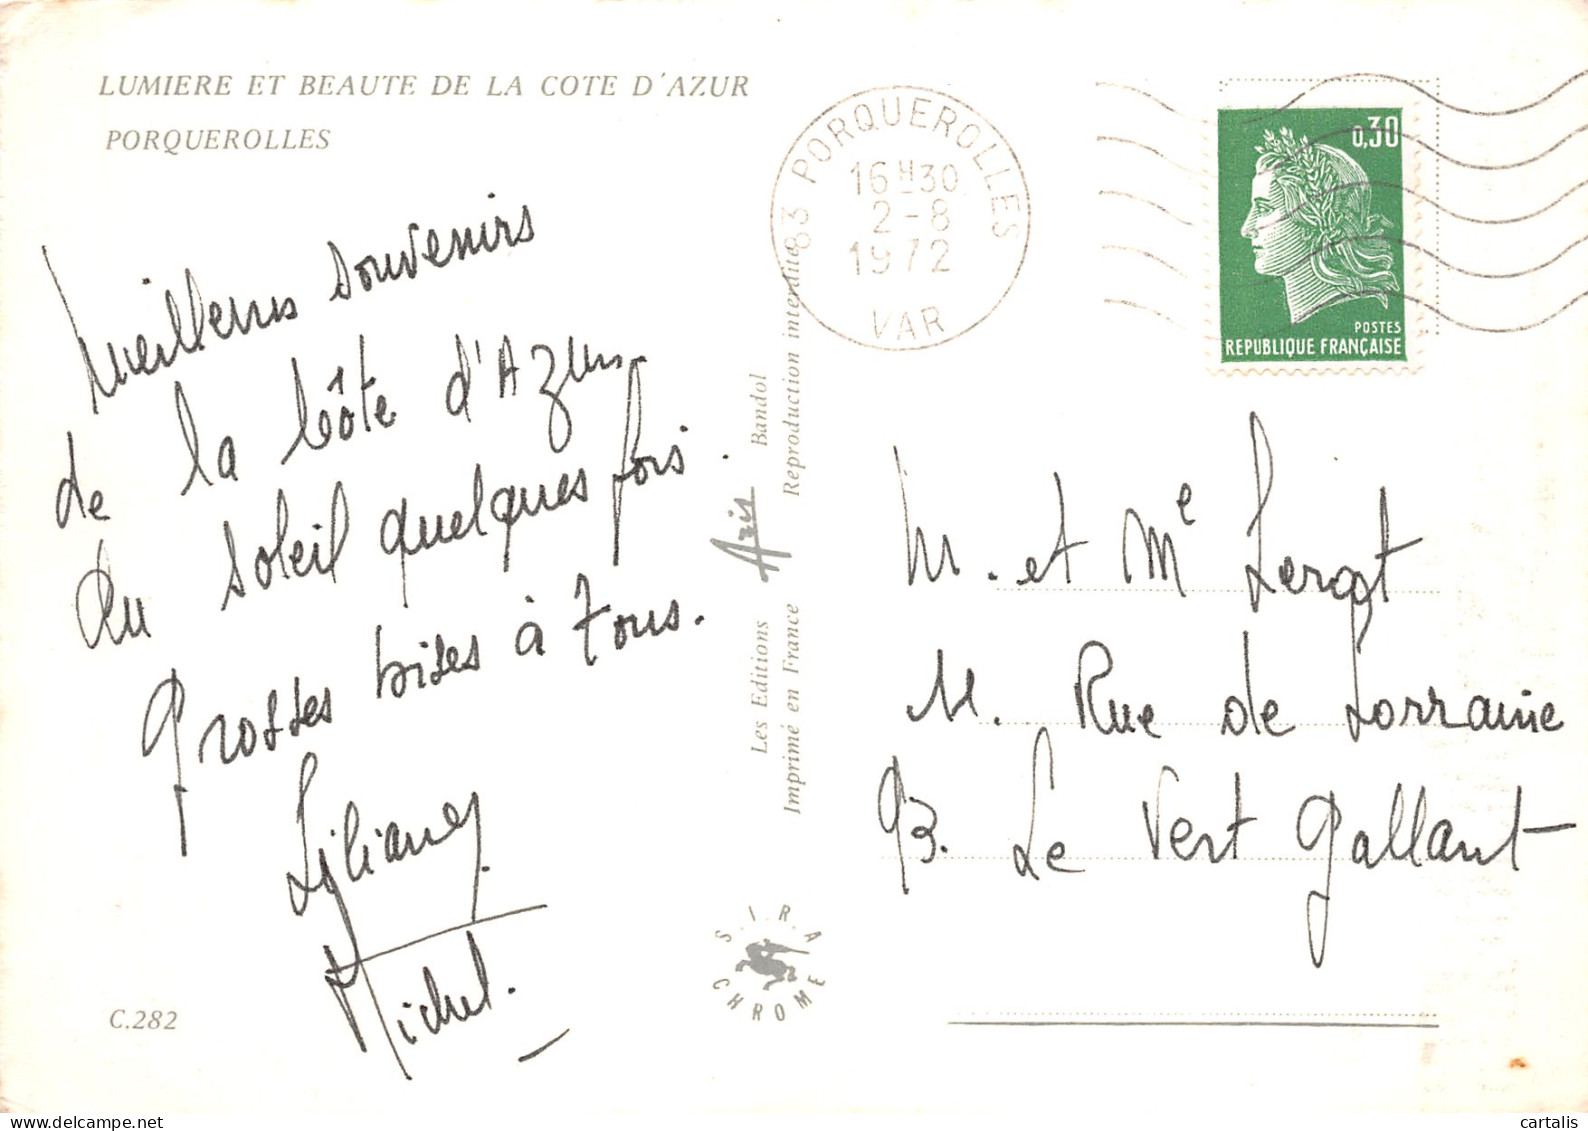 LUMIERE ET BEAUTE DE LA COTE D'AZUR
PORQUEROLLES
Meilleurs souvenirs
de la Côte d'Azur.
du soleil quelques fois.
Grosses bises à tous.
Liliane
Michel.
C.282
Les Editions Aris Bandol
Imprimé en France Reproduction interdite
S.I.R.A
CHROME
83 PORQUEROLLES
16H30
2-8
1972
VAR
0,30
POSTES
REPUBLIQUE FRANÇAISE
M. et Me
11. Rue de Lorraine
93. Le Vert Gallant
cartalis